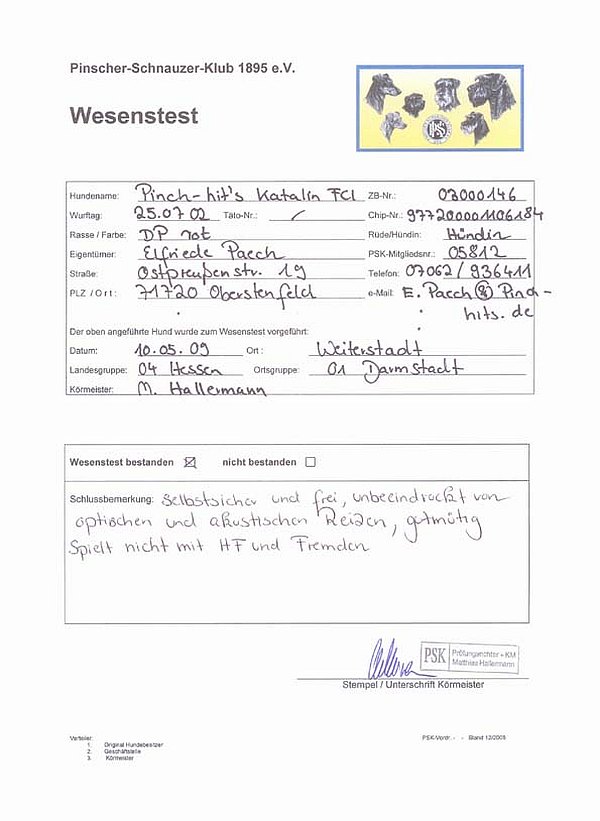 Pinscher-Schnauzer-Klub 1895 e.V.
Wesenstest
PSK
Hundename: Pinch-hit's Katalin FCI ZB-Nr.: 03000146
Wurftag: 25.07.02 Täto-Nr.: / Chip-Nr.: 977200001106184
Rasse / Farbe: DP rot Rüde/Hündin: Hündin
Eigentümer: Elfriede Paech PSK-Mitgliedsnr.: 05812
Straße: Ostpreußenstr. 19 Telefon: 07062/936411
PLZ / Ort: 71720 Oberstenfeld e-Mail: E.Paech@Pinch-
hits.de
Der oben angeführte Hund wurde zum Wesenstest vorgeführt:
Datum: 10.05.09 Ort: Weiterstadt
Landesgruppe: 04 Hessen Ortsgruppe: 01 Darmstadt
Körmeister: M. Hallermann
Wesenstest bestanden ☒ nicht bestanden ☐
Schlussbemerkung: Selbstsicher und frei, unbeeindruckt von
optischen und akustischen Reizen, gutmütig
Spielt nicht mit HF und Fremden
PSK Prüfungsrichter + KM
Matthias Hallermann
Stempel / Unterschrift Körmeister
Verteiler:
1. Original Hundebesitzer
2. Geschäftsstelle
3. Körmeister
PSK-Vordr. - - Stand 12/2005